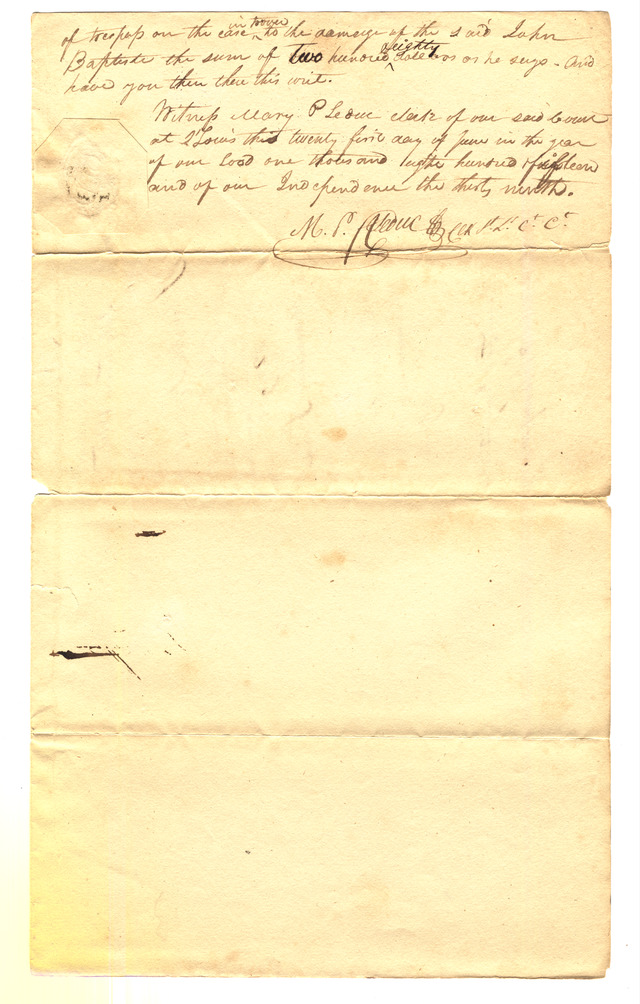 of trespass on the case in trover to the damage of the said John
Baptiste the sum of two hundred & eighty dollars as he says - And
have you then there this writ.
Witness Mary P Leduc clerk of our said Court
at St Louis this twenty first day of June in the year
of our Lord one thousand eight hundred & fifteen
and of our Independence the thirty ninth.
M. P. Leduc Clk St. Ls. Ct. Ct.